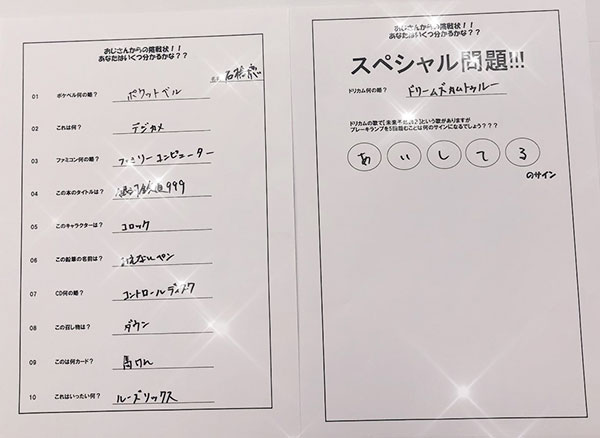 おじさんからの挑戦状！！
あなたはいくつ分かるかな？？
01 ポケベル何の略？ ポケットベル
02 これは何？ デジカメ
03 ファミコン何の略？ ファミリーコンピューター
04 この本のタイトルは？ 銀河鉄道999
05 このキャラクターは？ コロック
06 この鉛筆の名前は？ ペン
07 CD何の略？ コントロールディスク
08 この召し物は？ ダウン
09 このは何カード？
10 これはいったい何？ ルーズソックス
おじさんからの挑戦状！！
あなたはいくつ分かるかな？？
スペシャル問題!!!
ドリカム何の略？ ドリームズカムトゥルー
ドリカムの歌で『未来予想図2』という歌がありますが
ブレーキランプを5回踏むことは何のサインになるでしょう？？？
あ い し て る
のサイン